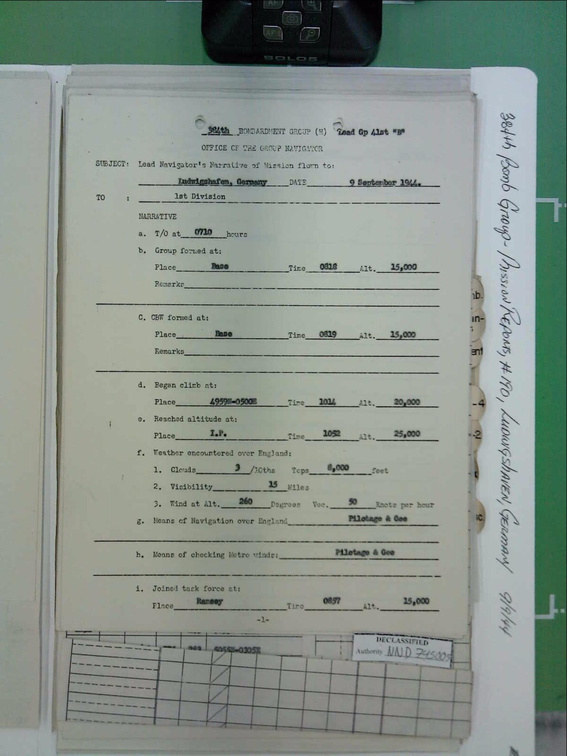 SOLOS
384th BOMBARDMENT GROUP (H) Lead Gp 41st "B"
OFFICE OF THE GROUP NAVIGATOR
SUBJECT: Lead Navigator's Narrative of Mission flown to:
Ludwigshafen, Germany DATE 9 September 1944.
TO : 1st Division
NARRATIVE
a. T/O at 0710 hours
b. Group formed at:
Place Base Time 0818 Alt. 15,000
Remarks
C. CBW formed at:
Place Base Time 0819 Alt. 15,000
Remarks
d. Began climb at:
Place 4959N-0500E Time 1014 Alt. 20,000
e. Reached altitude at:
Place I.P. Time 1052 Alt. 25,000
f. Weather encountered over England:
1. Clouds 3 /10ths Tops 8,000 feet
2. Visibility 15 Miles
3. Wind at Alt. 260 Degrees Vec. 50 Knots per hour
g. Means of Navigation over England Pilotage & Gee
h. Means of checking Metro winds: Pilotage & Gee
i. Joined task force at:
Place Ramsey Time 0857 Alt. 15,000
-1-
DECLASSIFIED
Authority NND 745005
384th Bomb Group - Mission Reports, #190, Ludwigshaven, Germany 9/9/44